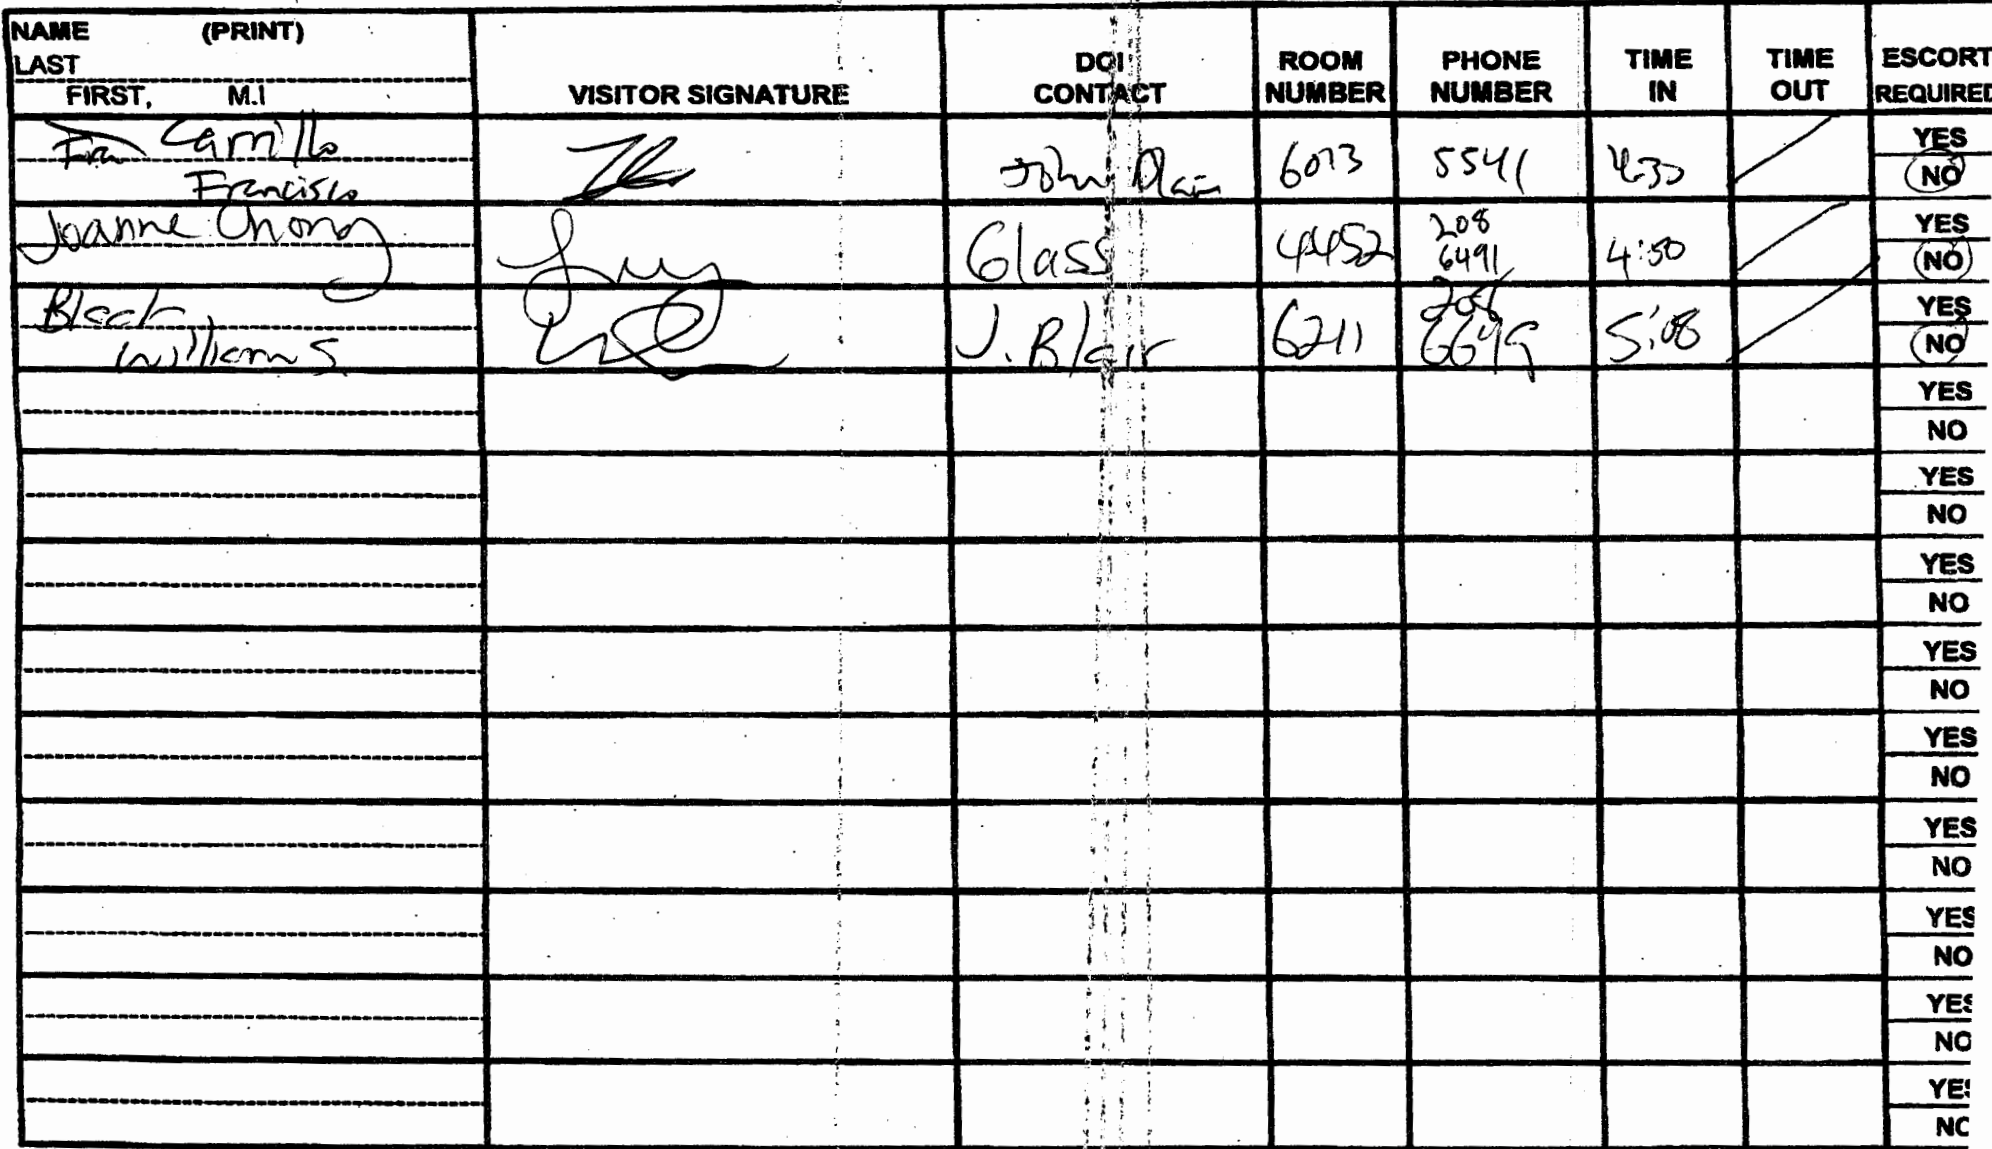 NAME (PRINT)
LAST
FIRST, M.I
VISITOR SIGNATURE
DOI
CONTACT
ROOM
NUMBER
PHONE
NUMBER
TIME
IN
TIME
OUT
ESCORT
REQUIRED
Carrillo
Francisco
John
6073
5541
4:30
YES
NO
Joanne Chong
Glass
4452
208
6491
4:50
YES
NO
Black
William S.
J. Blair
6211
208
6649
5:08
YES
NO
YES
NO
YES
NO
YES
NO
YES
NO
YES
NO
YES
NO
YES
NO
YES
NO
YES
NO